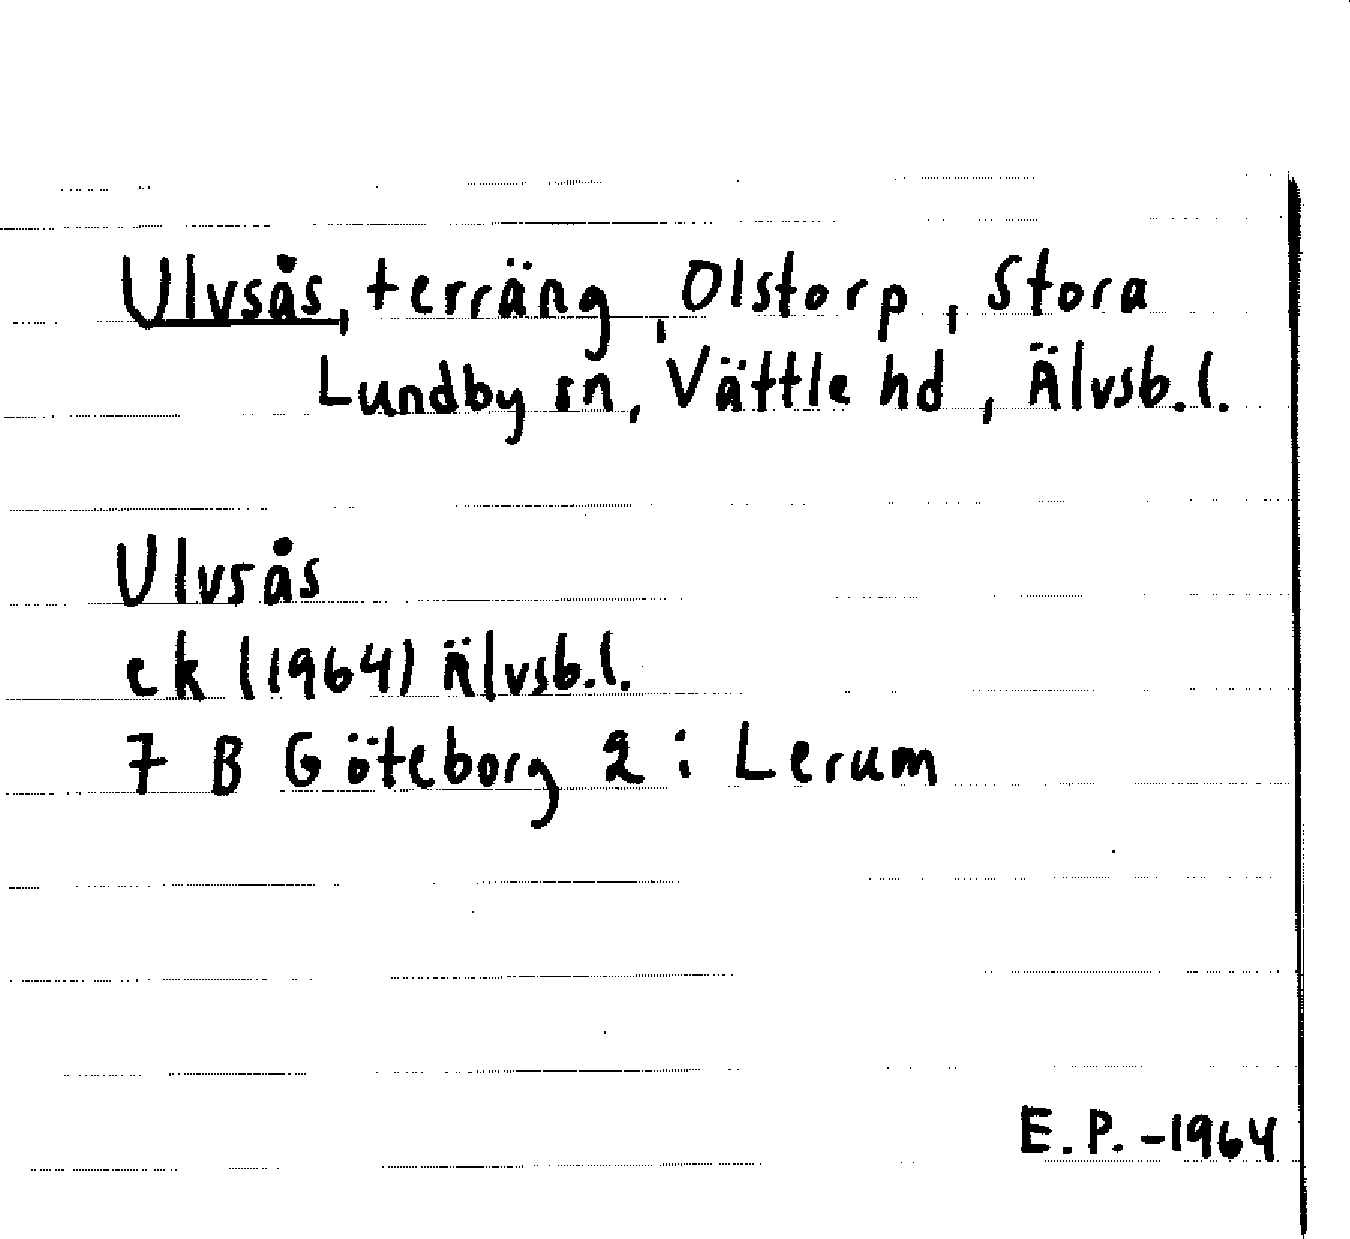 Ulvsås, terräng, Olstorp, Stora
Lundby sn, Vättle hd, Älvsb.l.
Ulvsås
ek (1964) Älvsb.l.
7 B Göteborg 2 i Lerum
E.P. -1964